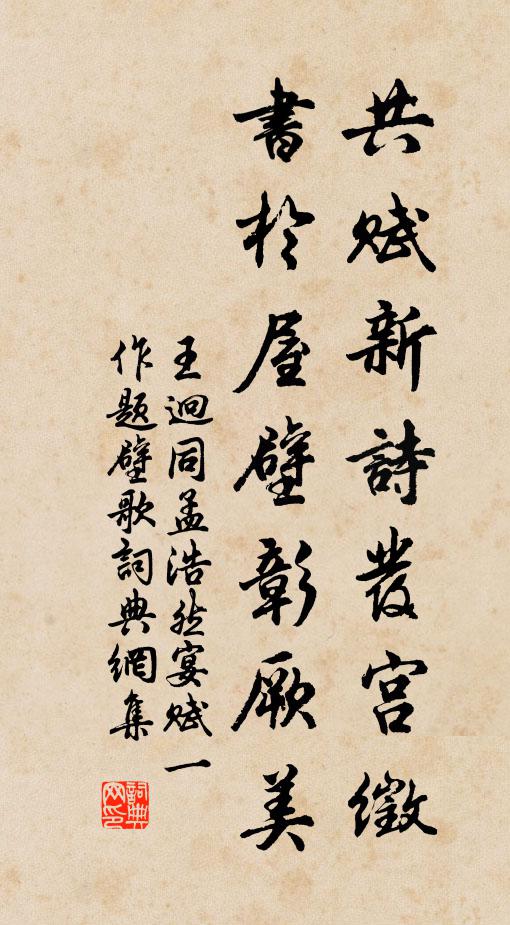 共賦新詩發宮徵
書於屋壁彰厥美
王迥同孟浩然宴賦一
作題壁歌詞典網集
詞典网印